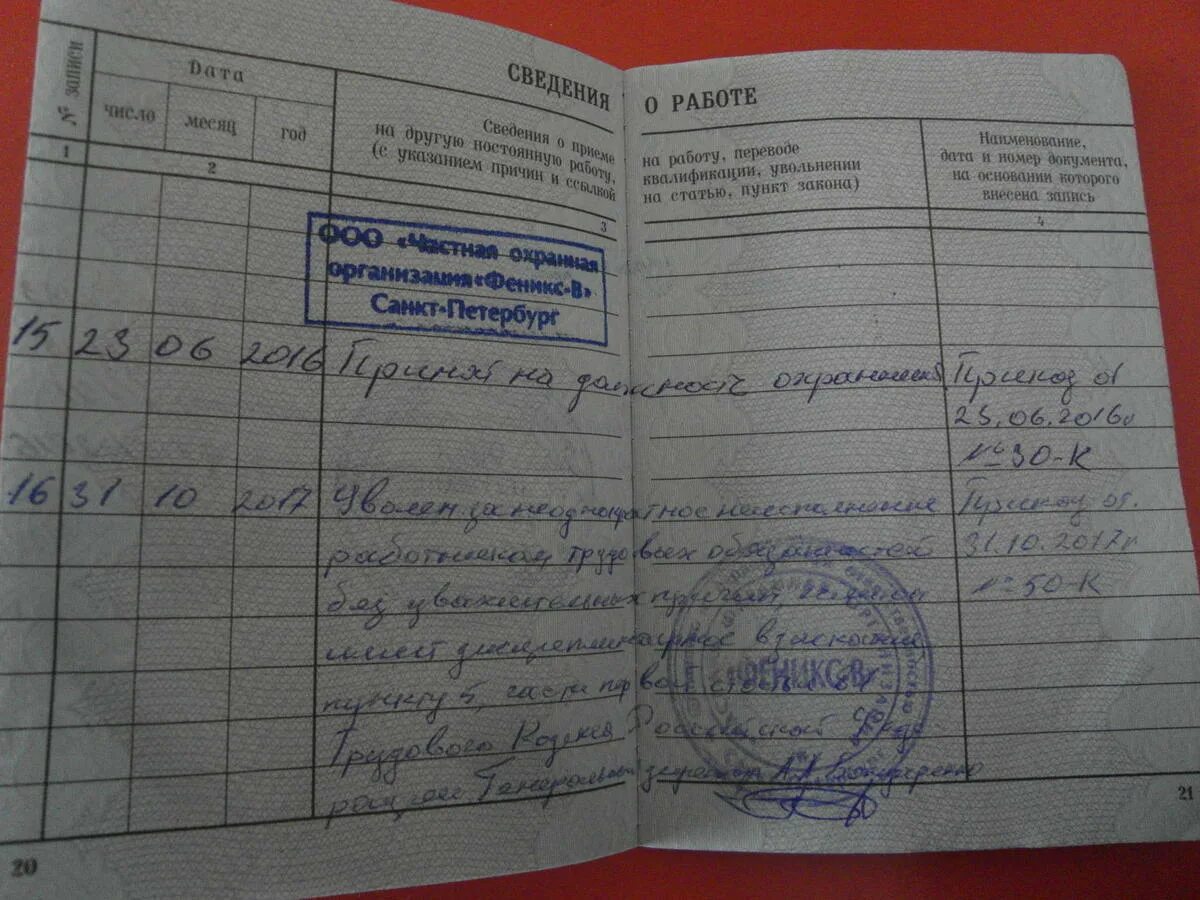 СВЕДЕНИЯ О РАБОТЕ
№ записи
Дата
число
месяц
год
Сведения о приеме
на другую постоянную работу,
(с указанием причин и ссылкой
на работу, переводе
квалификации, увольнении
на статью, пункт закона)
Наименование,
дата и номер документа,
на основании которого
внесена запись
1
2
3
4
ООО «Частная охранная
организация «Феникс-В»
Санкт-Петербург
15 23 06 2016 Принят на должность охранника Приказ от
23.06.2016г
№ 30-К
16 31 10 2017 Уволен за неоднократное неисполнение Приказ от
работником трудовых обязанностей 31.10.2017г
без уважительных причин, № 50-К
имеет дисциплинарное взыскание
пункт 5, части первой статьи 81
Трудового Кодекса Российской
Генеральный директор
«ФЕНИКС-В»
20
21